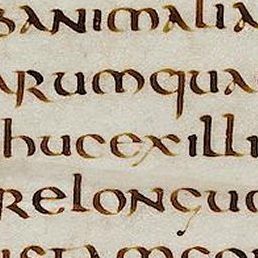 sanimalia
arumqua
huc exilli
re longui